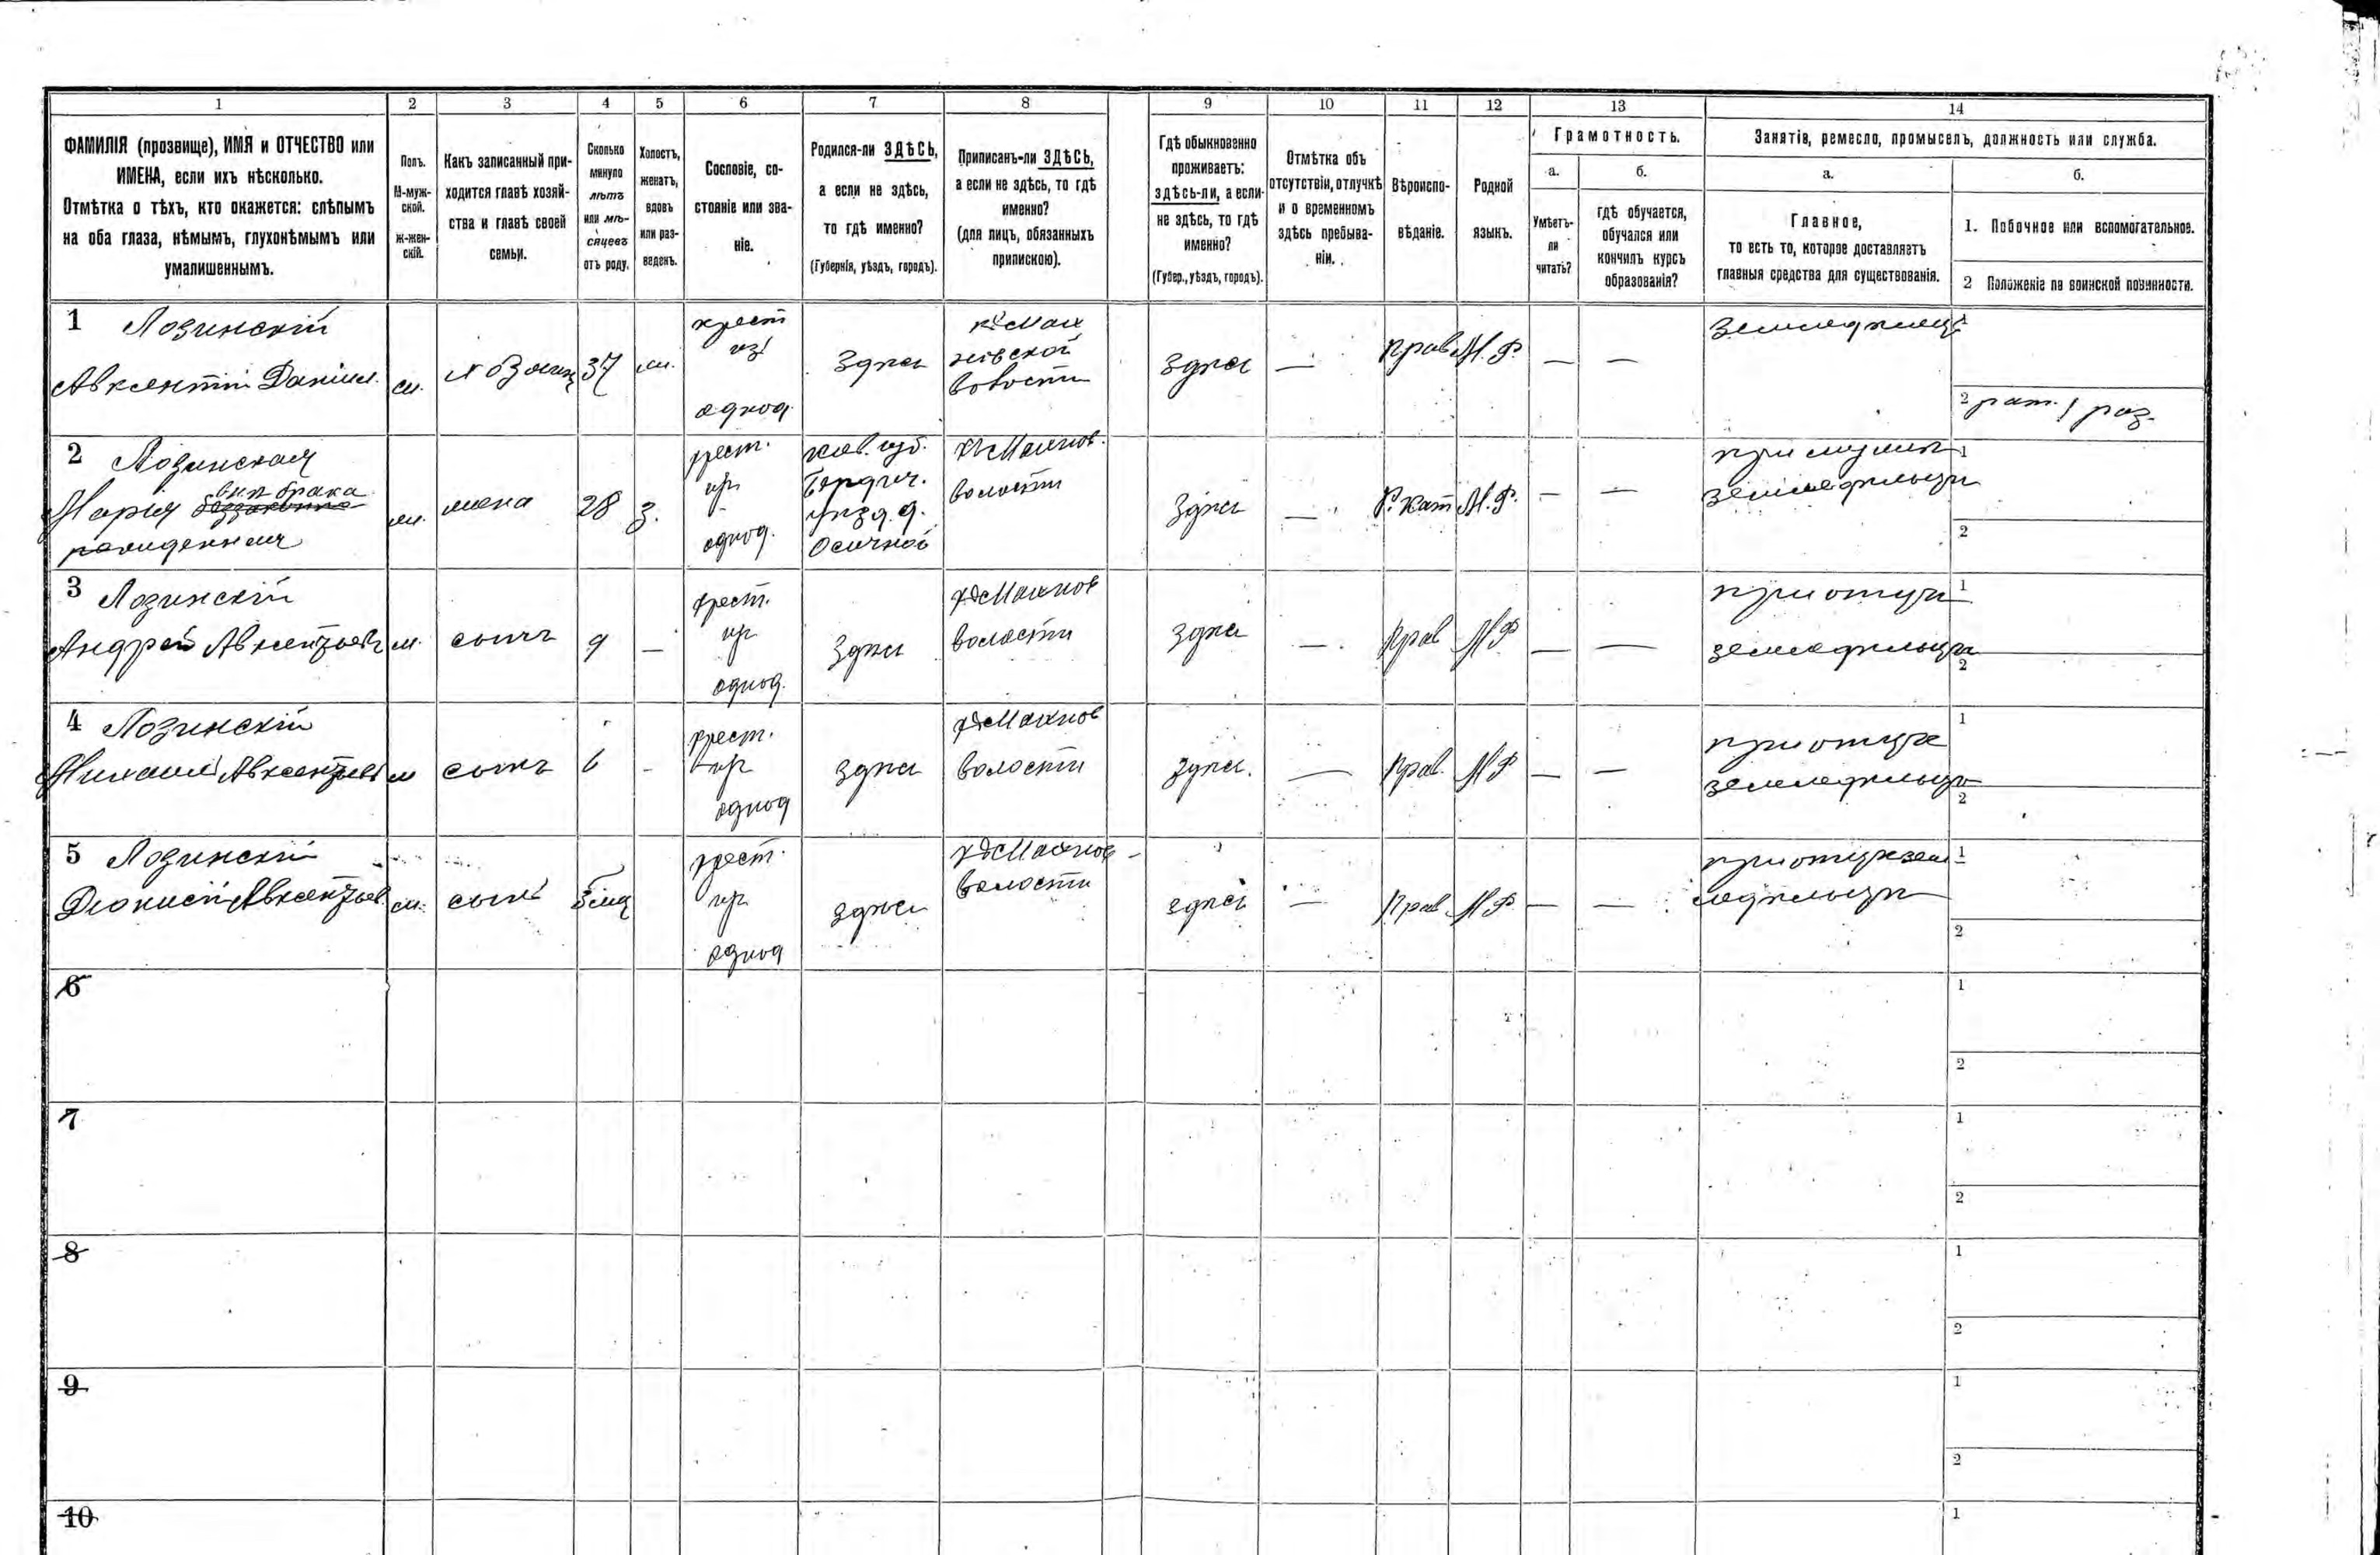 1 2 3 4 5 6 7 8 9 10 11 12 13 14
ФАМИЛІЯ (прозвище), ИМЯ и ОТЧЕСТВО или
ИМЕНА, если ихъ нѣсколько.
Отмѣтка о тѣхъ, кто окажется: слѣпымъ
на оба глаза, нѣмымъ, глухонѣмымъ или
умалишеннымъ.
Полъ.
М-муж-
ской.
Ж-жен-
скій.
Какъ записанный при-
ходится главѣ хозяй-
ства и главѣ своей
семьи.
Сколько
минуло
лѣтъ
или мѣ-
сяцевъ
отъ роду.
Холостъ,
женатъ,
вдовъ
или раз-
веденъ.
Сословіе, со-
стояніе или зва-
ніе.
Родился-ли ЗДѢСЬ,
а если не здѣсь,
то гдѣ именно?
(Губернія, уѣздъ, городъ).
Приписанъ-ли ЗДѢСЬ,
а если не здѣсь, то гдѣ
именно?
(для лицъ, обязанныхъ
припискою).
Гдѣ обыкновенно
проживаетъ:
здѣсь-ли, а если
не здѣсь, то гдѣ
именно?
(Губер., уѣздъ, городъ).
Отмѣтка объ
отсутствіи, отлучкѣ
и о временномъ
здѣсь пребыва-
ніи.
Вѣроиспо-
вѣданіе.
Родной
языкъ.
Грамотность.
а.
Умѣетъ-
ли
читать?
б.
гдѣ обучается,
обучался или
кончилъ курсъ
образованія?
Занятія, ремесло, промыселъ, должность или служба.
а.
Главное,
то есть то, которое доставляетъ
главныя средства для существованія.
б.
1. Побочное или вспомогательное.
2 Положеніе по воинской повинности.
1 Лозинскій
Авксентій Даніил.
м.
хозяинъ
37
крест
из
однод.
Здѣсь
волости
Здѣсь
—
Прав
М. Р.
—
—
Земледѣлецъ
1
2 рат. 1 раз.
2 Лозинская
Марія внѣ брака
рожденная
жена
28
З.
крест.
из
однод.
Кіев. губ.
Бердич.
уѣзд. д.
Осичной
волости
Здѣсь
—
Р. Кат
М. Р.
—
—
при мужѣ
земледѣльцѣ
1
2
3 Лозинскій
Андрей Авксентьевъ
м.
сынъ
9
—
крест.
из
однод.
Здѣсь
волости
Здѣсь
—
Прав
М Р
—
—
при отцѣ
земледѣльцѣ
1
2
4 Лозинскій
Авксентьевъ
м
сынъ
6
-
крест.
из
однод
здѣсь
волости
Здѣсь.
—
Прав.
М Р
—
—
при отцѣ
земледѣльцѣ
1
2
5 Лозинскій
Діонисій Авксентьев.
м.
сынъ
крест.
из
однод
здѣсь
волости
здѣсь
—
Прав
М Р
—
—
при отцѣ зем
ледѣльцѣ
1
2
6
1
2
7
1
2
8
1
2
9
1
2
10
1